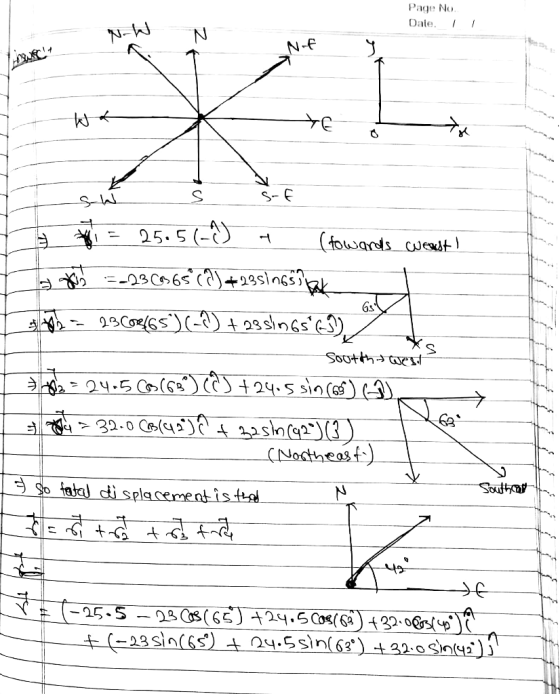 Page No.
Date. / /
Answer:-
N-W N N-E y
W E o x
S-W S S-E
⇒ r⃗1 = 25.5(-î) → (towards west)
⇒ r⃗2 = -23cos65°(î) + 23sin65°ĵ
65°
⇒ r⃗2 = 23cos(65°)(-î) + 23sin65°(-ĵ)
South → west S
⇒ r⃗3 = 24.5 cos(63°)(î) + 24.5 sin(63°)(-ĵ)
63°
⇒ r⃗4 = 32.0 cos(42°)î + 32sin(42°)(ĵ)
(Northeast.)
⇒ so total displacement is
N
r⃗ = r⃗1 + r⃗2 + r⃗3 + r⃗4
42°
r⃗ =
E
r⃗ = (-25.5 - 23cos(65°) + 24.5cos(63°) + 32.0cos(42°))î
+ (-23sin(65°) + 24.5sin(63°) + 32.0sin(42°))ĵ